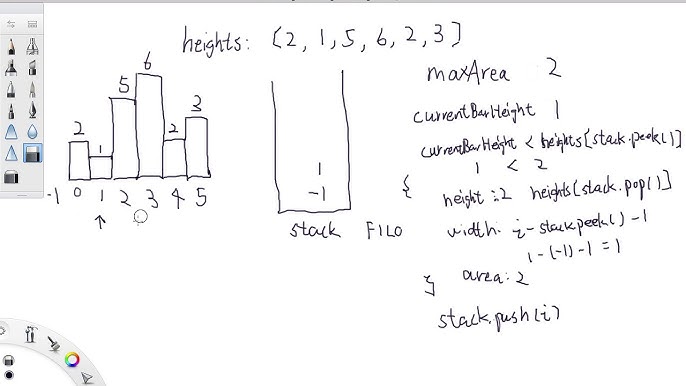 heights: [2, 1, 5, 6, 2, 3]
maxArea 2
6
5
currentBarHeight 1
3
2
2
1
currentBarHeight < heights[stack.peek()]
1 < 2
1
{ height: 2 heights[stack.pop()]
-1
-1 0 1 2 3 4 5
stack FILO
width: i - stack.peek() - 1
1 - (-1) - 1 = 1
area: 2
}
stack.push(i)